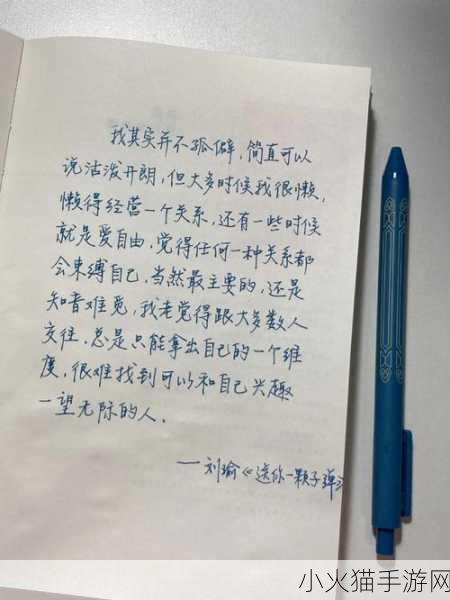 我其实并不孤僻，简直可以
说活泼开朗，但大多时候我很懒，
懒得经营一个关系，还有一些时候
就是爱自由，觉得任何一种关系都
会束缚自己，当然最主要的，还是
知音难觅，我老觉得跟大多数人
交往，总是只能拿出自己的一个维
度，很难找到可以和自己兴趣
一望无际的人．
——刘瑜《送你一颗子弹》
小火猫手游网